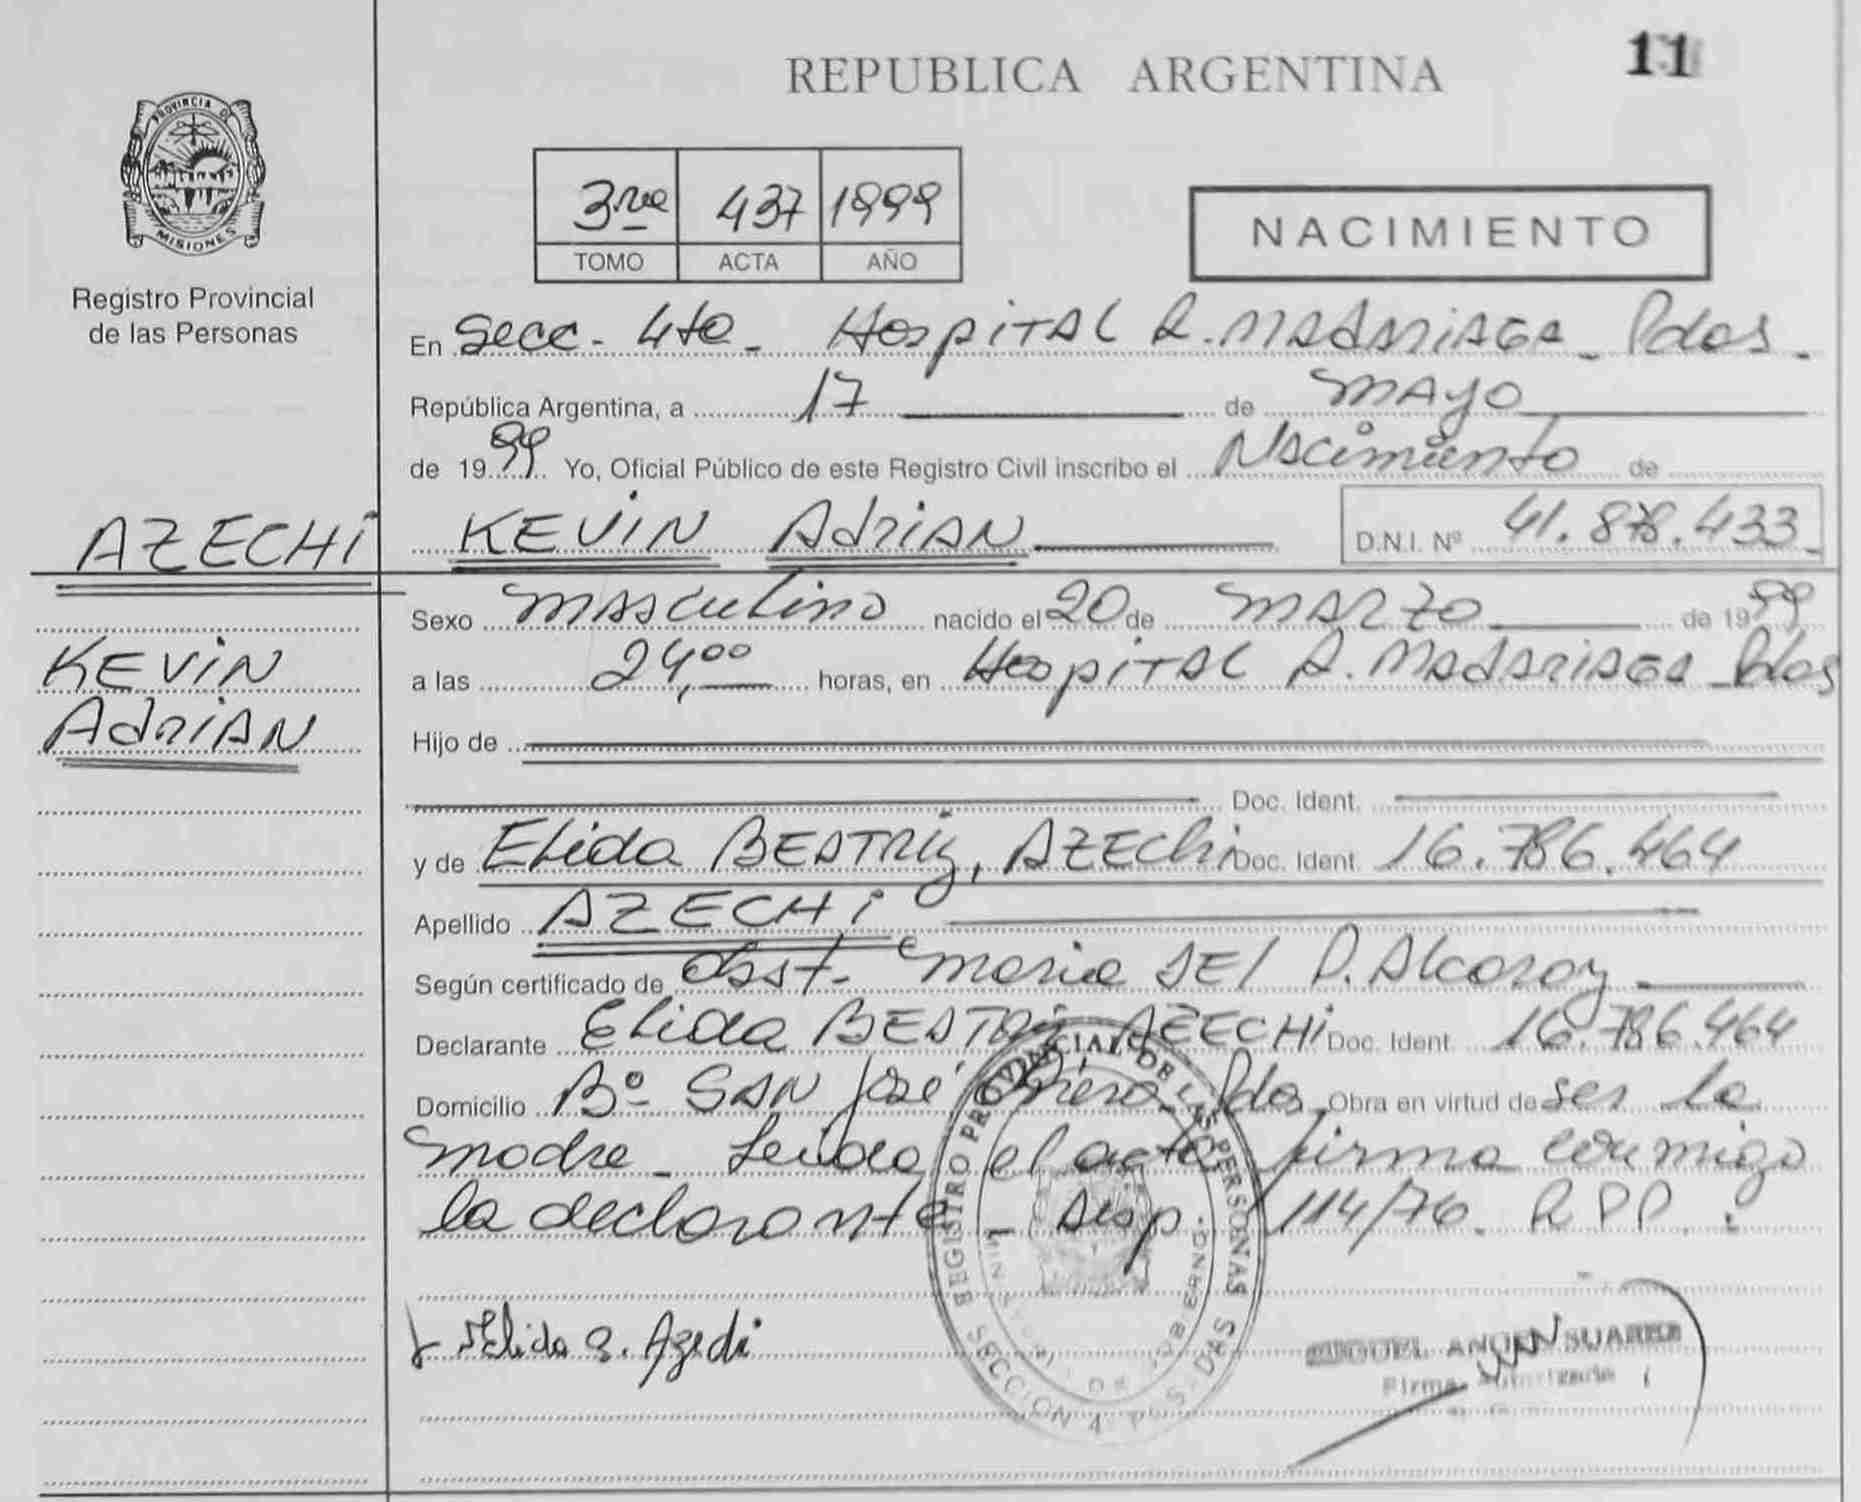 11
REPUBLICA ARGENTINA
PROVINCIA DE
MISIONES
Registro Provincial
de las Personas
3ro 437 1999
TOMO ACTA AÑO
NACIMIENTO
En Secc. 4ta. Hospital R. Madariaga. Pdas.
República Argentina, a 17 de Mayo
de 1999. Yo, Oficial Público de este Registro Civil inscribo el Nacimiento de
AZECHI KEVIN AdriAN D.N.I. Nº 41.878.433
Sexo Masculino nacido el 20 de MARZO de 1999
KEVIN
a las 24,00 horas, en Hospital R. Madariaga Pdas
AdriAN
Hijo de
Doc. Ident.
y de Elida BEATRiz, AZEChi Doc. Ident. 16.786.464
Apellido AZECHi
Según certificado de Obst. Maria del P. Alcaraz
Declarante Elida BEATRiz AZECHi Doc. Ident. 16.786.464
Domicilio Bº SAN José Obrero. Pdas. Obra en virtud de ser la
madre. Leida el acta, firma conmigo
la declarante. Disp. 114/76. R.P.P.
REGISTRO PROVINCIAL DE LAS PERSONAS
SECCION 4 PDAS
Elida B. Azechi
MIGUEL ANGEL SUAREZ
Firma Autorizada